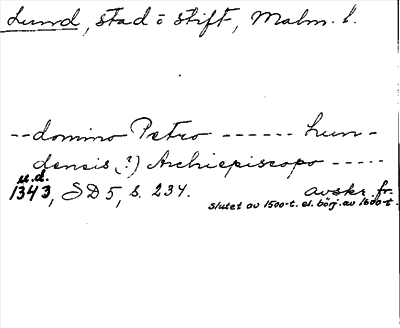 Lund, stad o stift, Malm. l.
-- domino Petro ------ Lun-
densis (?) Archiepiscopo -----
u.d.
1343, SD 5, s. 234. avskr. fr.
slutet av 1500-t. el. börj. av 1600-t.